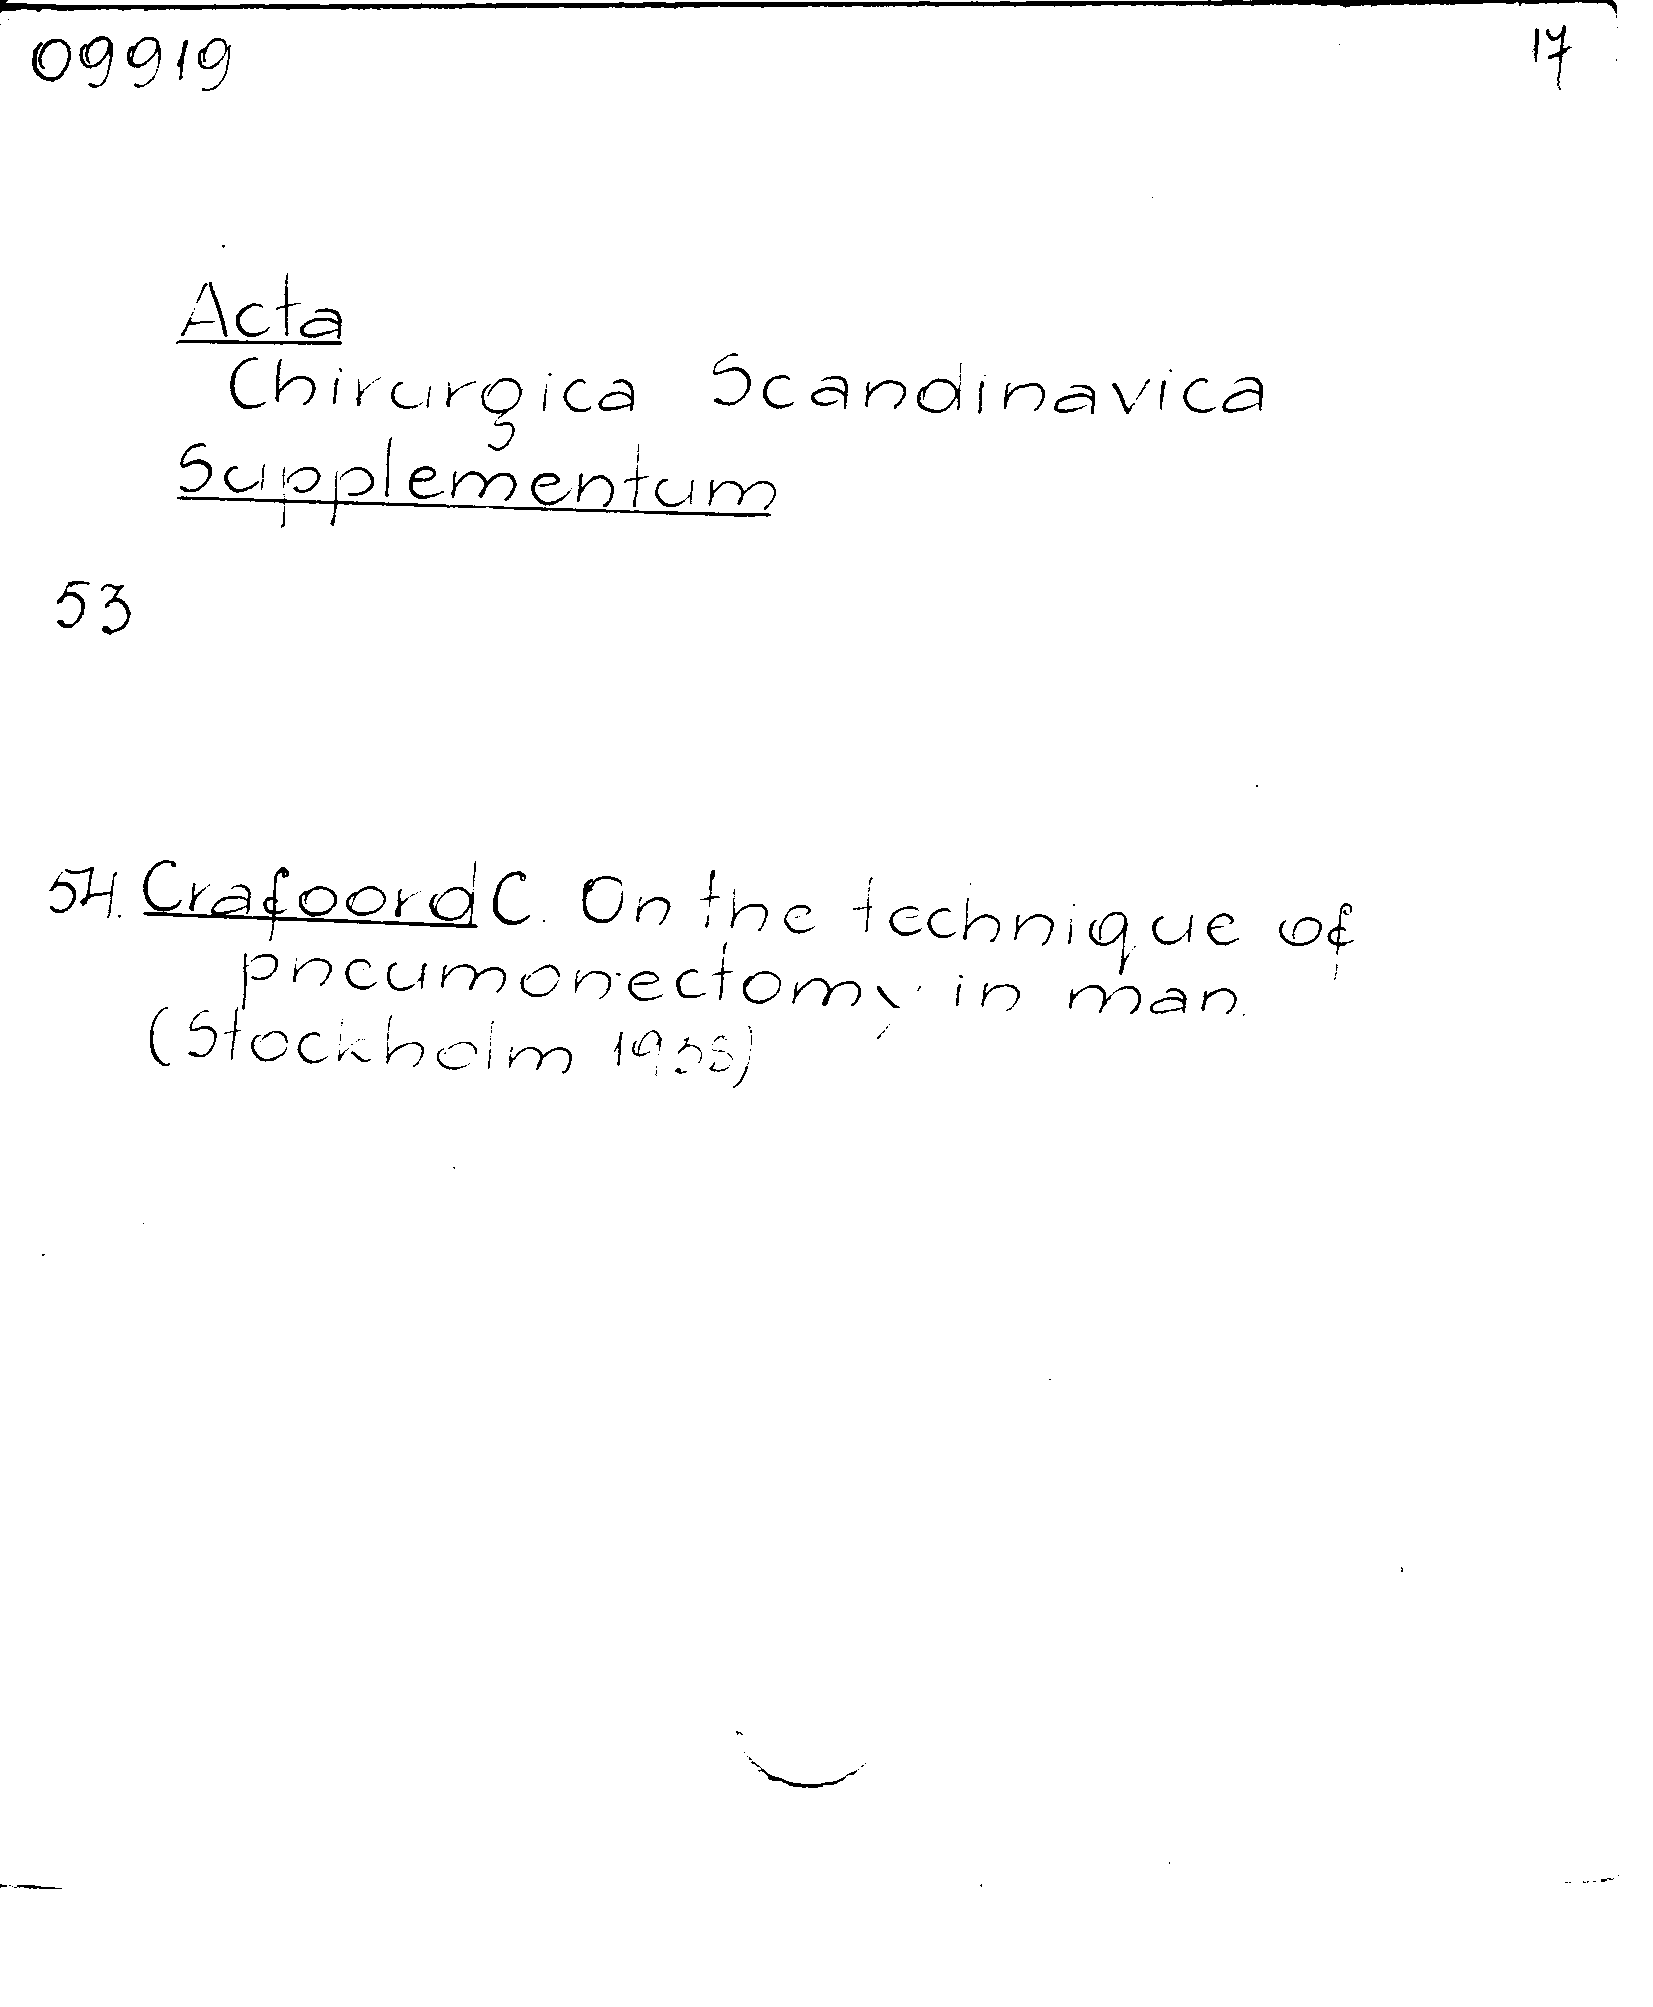 09919 17
Acta
Chirurgica Scandinavica
Supplementum
53
54. Crafoord C. On the technique of
pneumonectomy in man.
(Stockholm 1938)